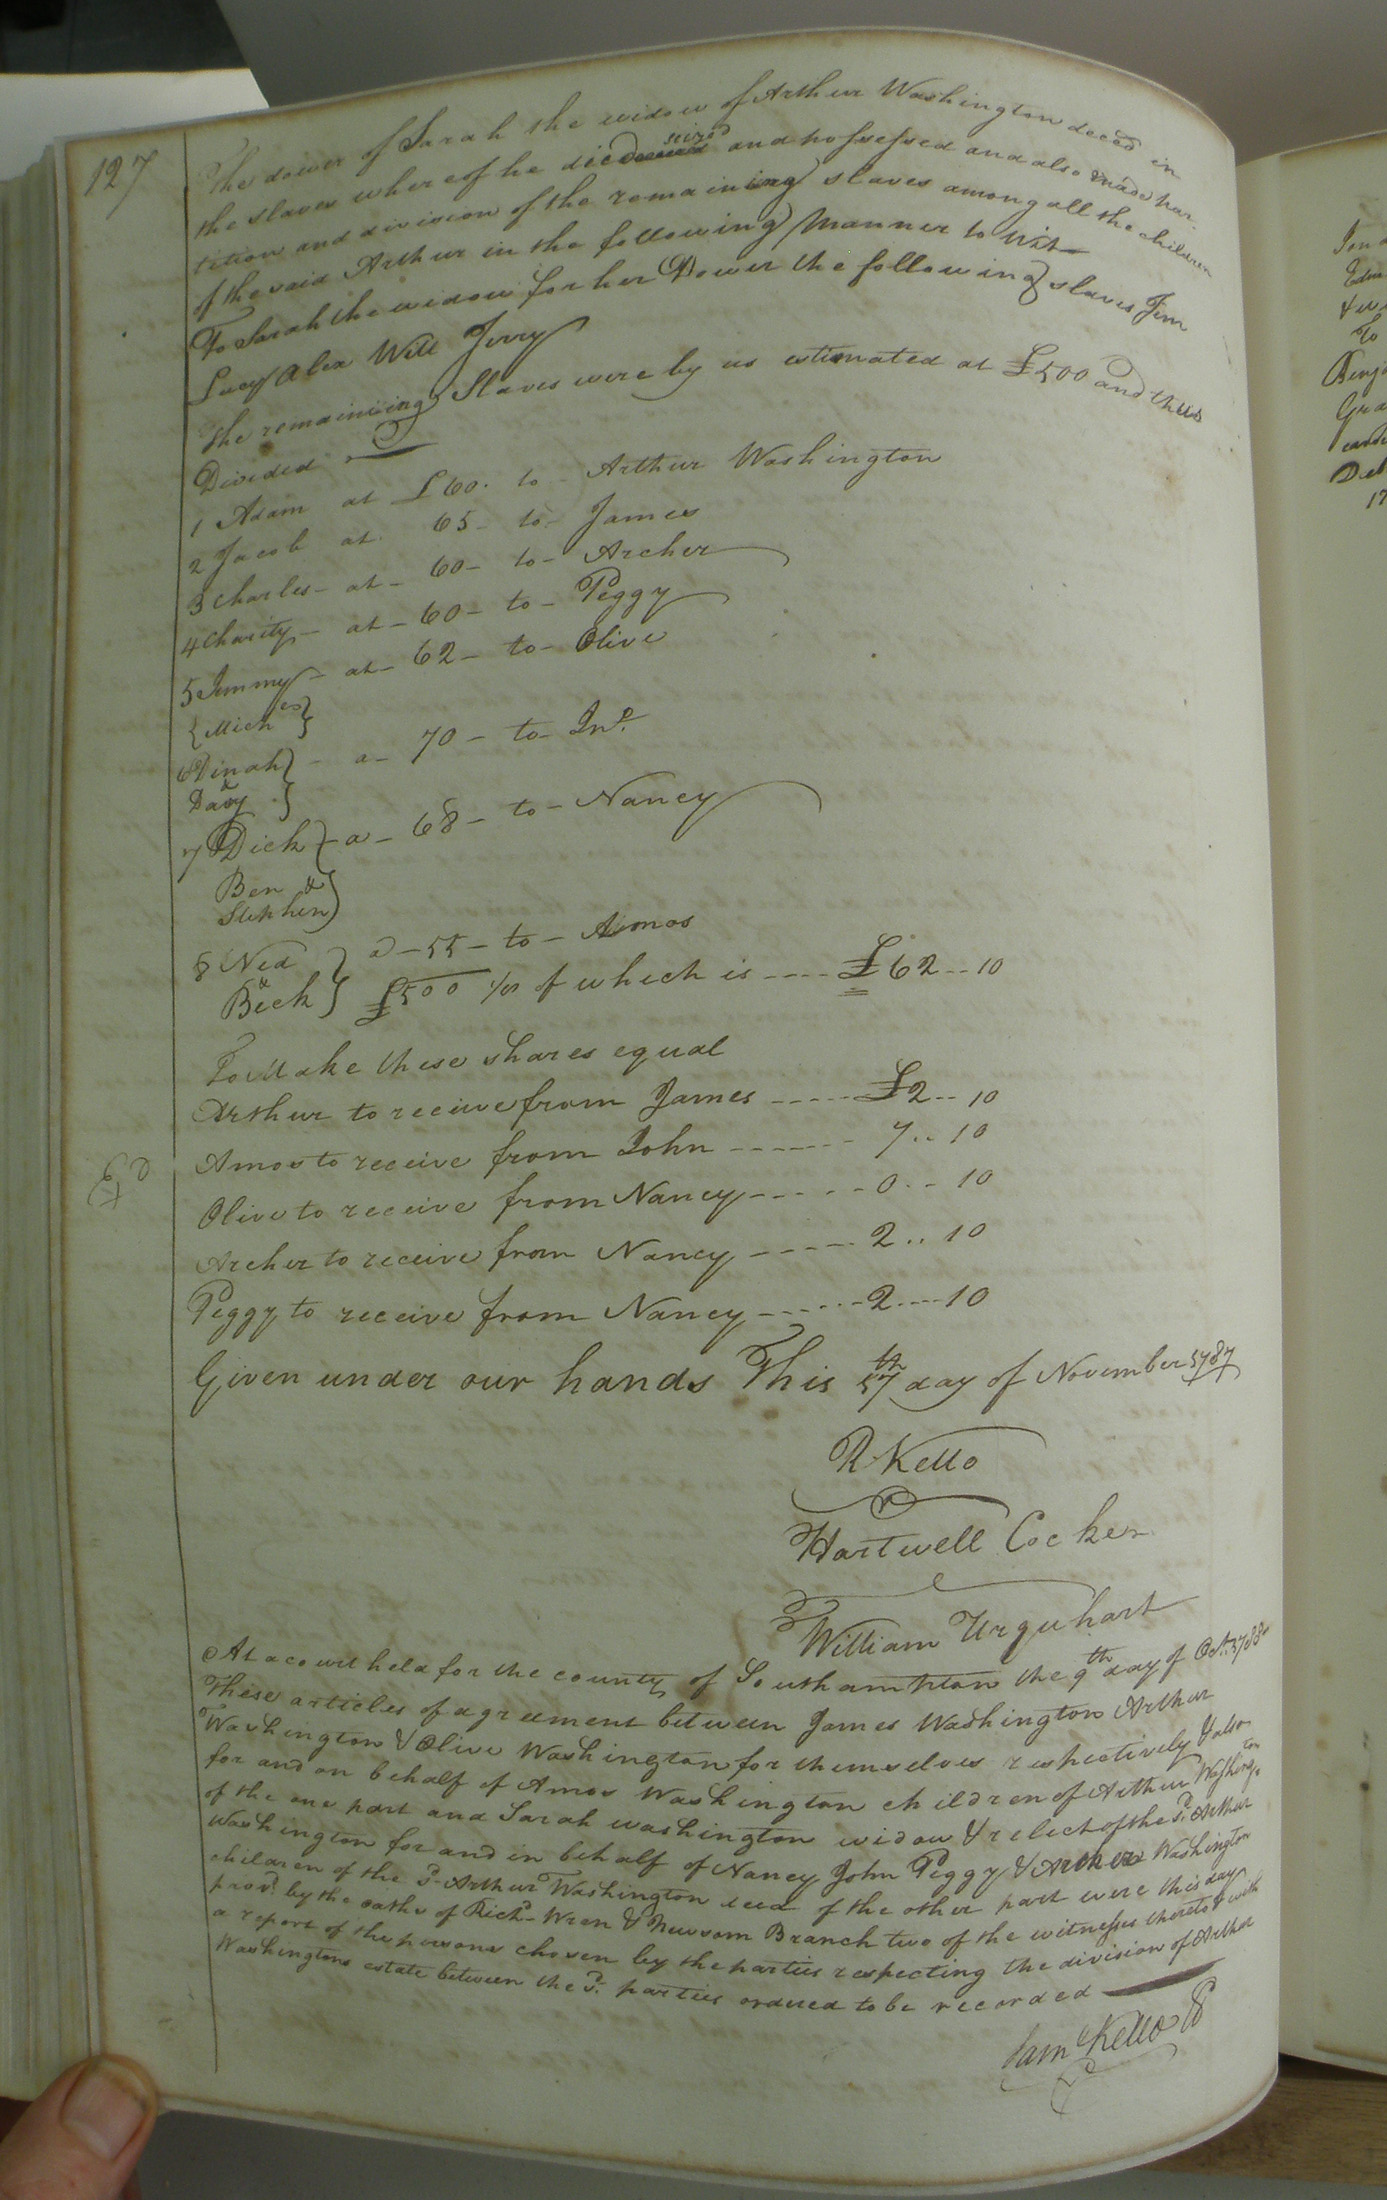 127
The dower of Sarah the widow of Arthur Washington decd in
the slaves whereof he died seized and possessed and also made par-
tition and division of the remaining slaves among all the children
of the said Arthur in the following Manner to wit
To Sarah the widow for her Dower the following slaves Jem
Lucy Alex Will Jerry
The remaining Slaves were by us estimated at £500 and thus
Divided
1 Adam at £60. to Arthur Washington
2 Jacob at 65 - to - James
3 Charles - at - 60 - to - Archer
4 Charity - at - 60 - to - Peggy
5 Jimmy - at - 62 - to - Olive
{Mich es}
6 Dinah} - a - 70 - to - Jno.
& Davy }
7 Dick } - a - 68 - to - Nancy
Ben &
Stephen }
8 Ned } a - 55 - to - Amos
& Beck } £500 1/8 of which is ---- £62 -- 10
To Make these shares equal
Arthur to receive from James ----- £2 -- 10
Amos to receive from John ------- 7 .. 10
Ed
Olive to receive from Nancy ----- 0 .. 10
Archer to receive from Nancy ---- 2 .. 10
Peggy to receive from Nancy ------ 2 ---- 10
Given under our hands This 17th day of November 1787
R Kello
Hartwell Cocker
William Urquhart
At a court held for the county of Southampton the 9th day of Oct. 1788
These articles of agreement between James Washington Arthur
Washington & Olive Washington for themselves respectively & also
for and on behalf of Amos Washington children of Arthur Washington
of the one part and Sarah washington widow & relect of the sd. Arthur
Washington for and in behalf of Nancy John Peggy & Archer Washington
children of the sd. Arthur Washington decd of the other part were this day
provd. by the oaths of Richd. Wren & Newsom Branch two of the witnesses thereto & with
a report of the persons chosen by the parties respecting the division of Arthur
Washingtons estate between the sd. parties ordered to be recorded
Sam Kello
Edw
To
Benj
Gra
17